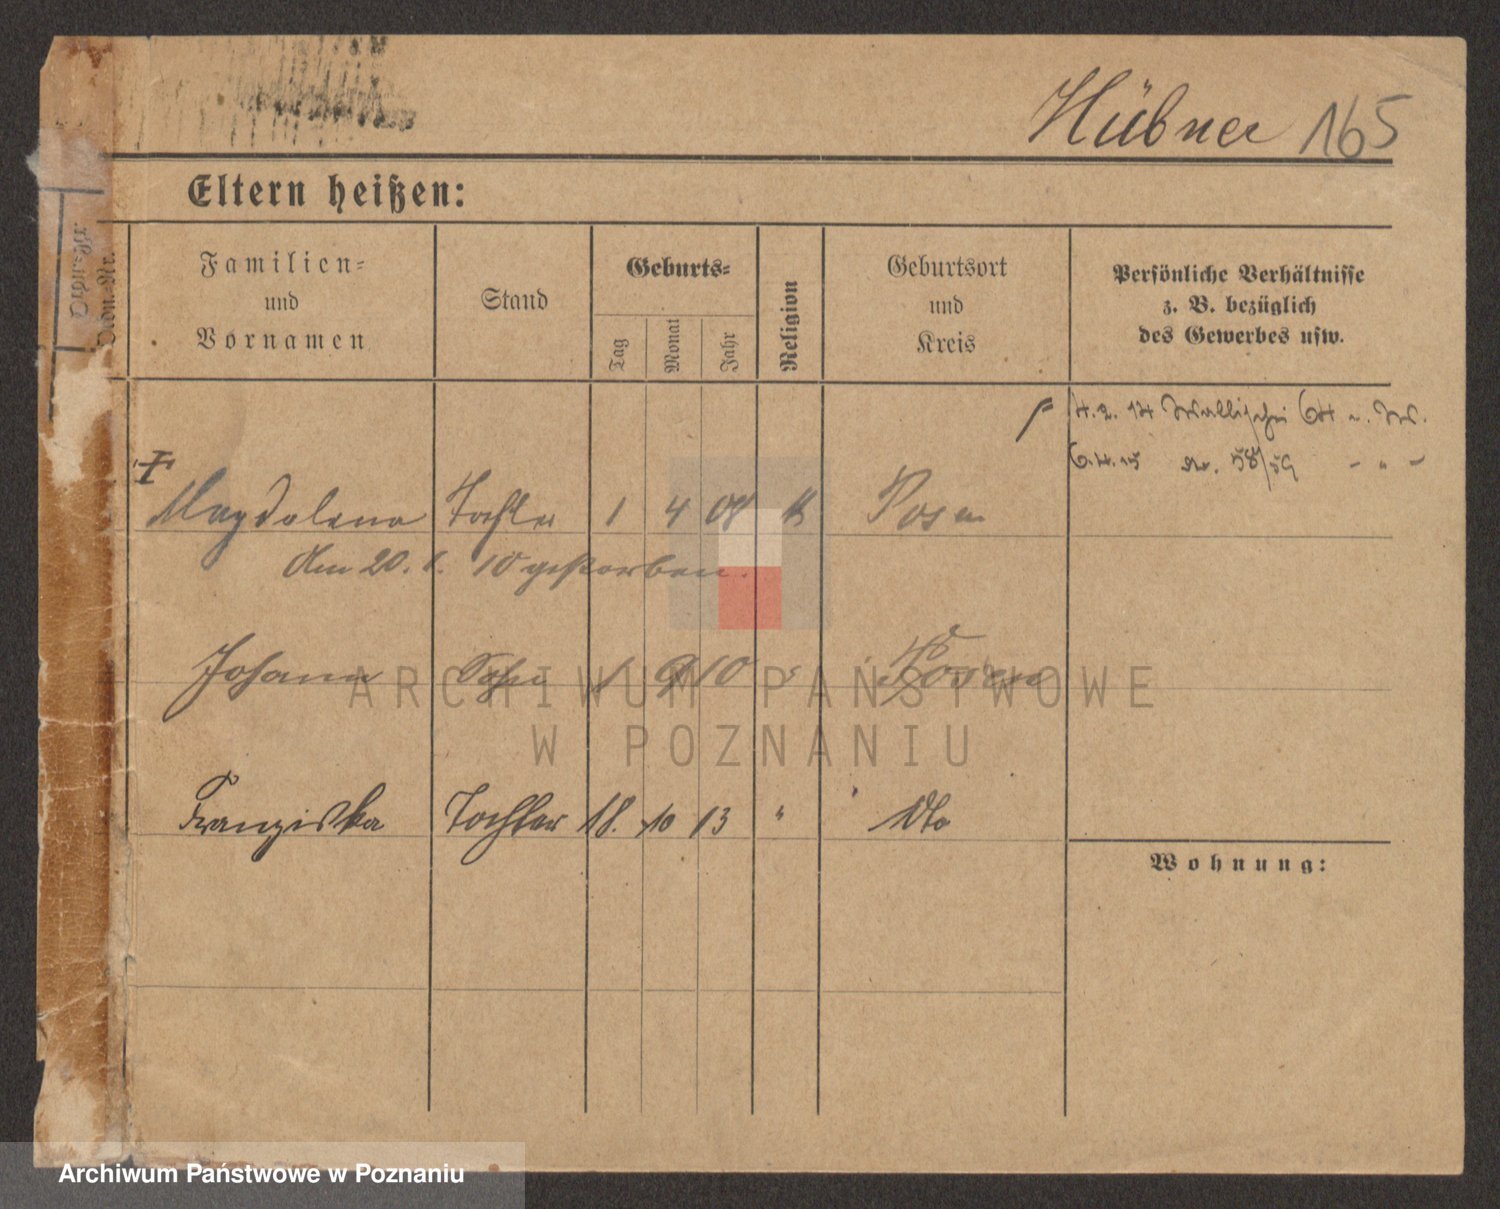 Hübner 165
Eltern heißen:
Ordn.-Nr.
Familien-
und
Vornamen
Stand
Geburts-
Tag
Monat
Jahr
Religion
Geburtsort
und
Kreis
Persönliche Verhältnisse
z. B. bezüglich
des Gewerbes usw.
4.2.14 Wallischei 64 u. W.
6.4.15 58/59 - " -
Magdalena Tochter 1 4 08 k Posen
den 20. 1. 10 gestorben.
Johann Sohn 1 9 10 " Posen
Franziska Tochter 18. 10 13 " dto
Wohnung:
ARCHIWUM PAŃSTWOWE
W POZNANIU
Archiwum Państwowe w Poznaniu